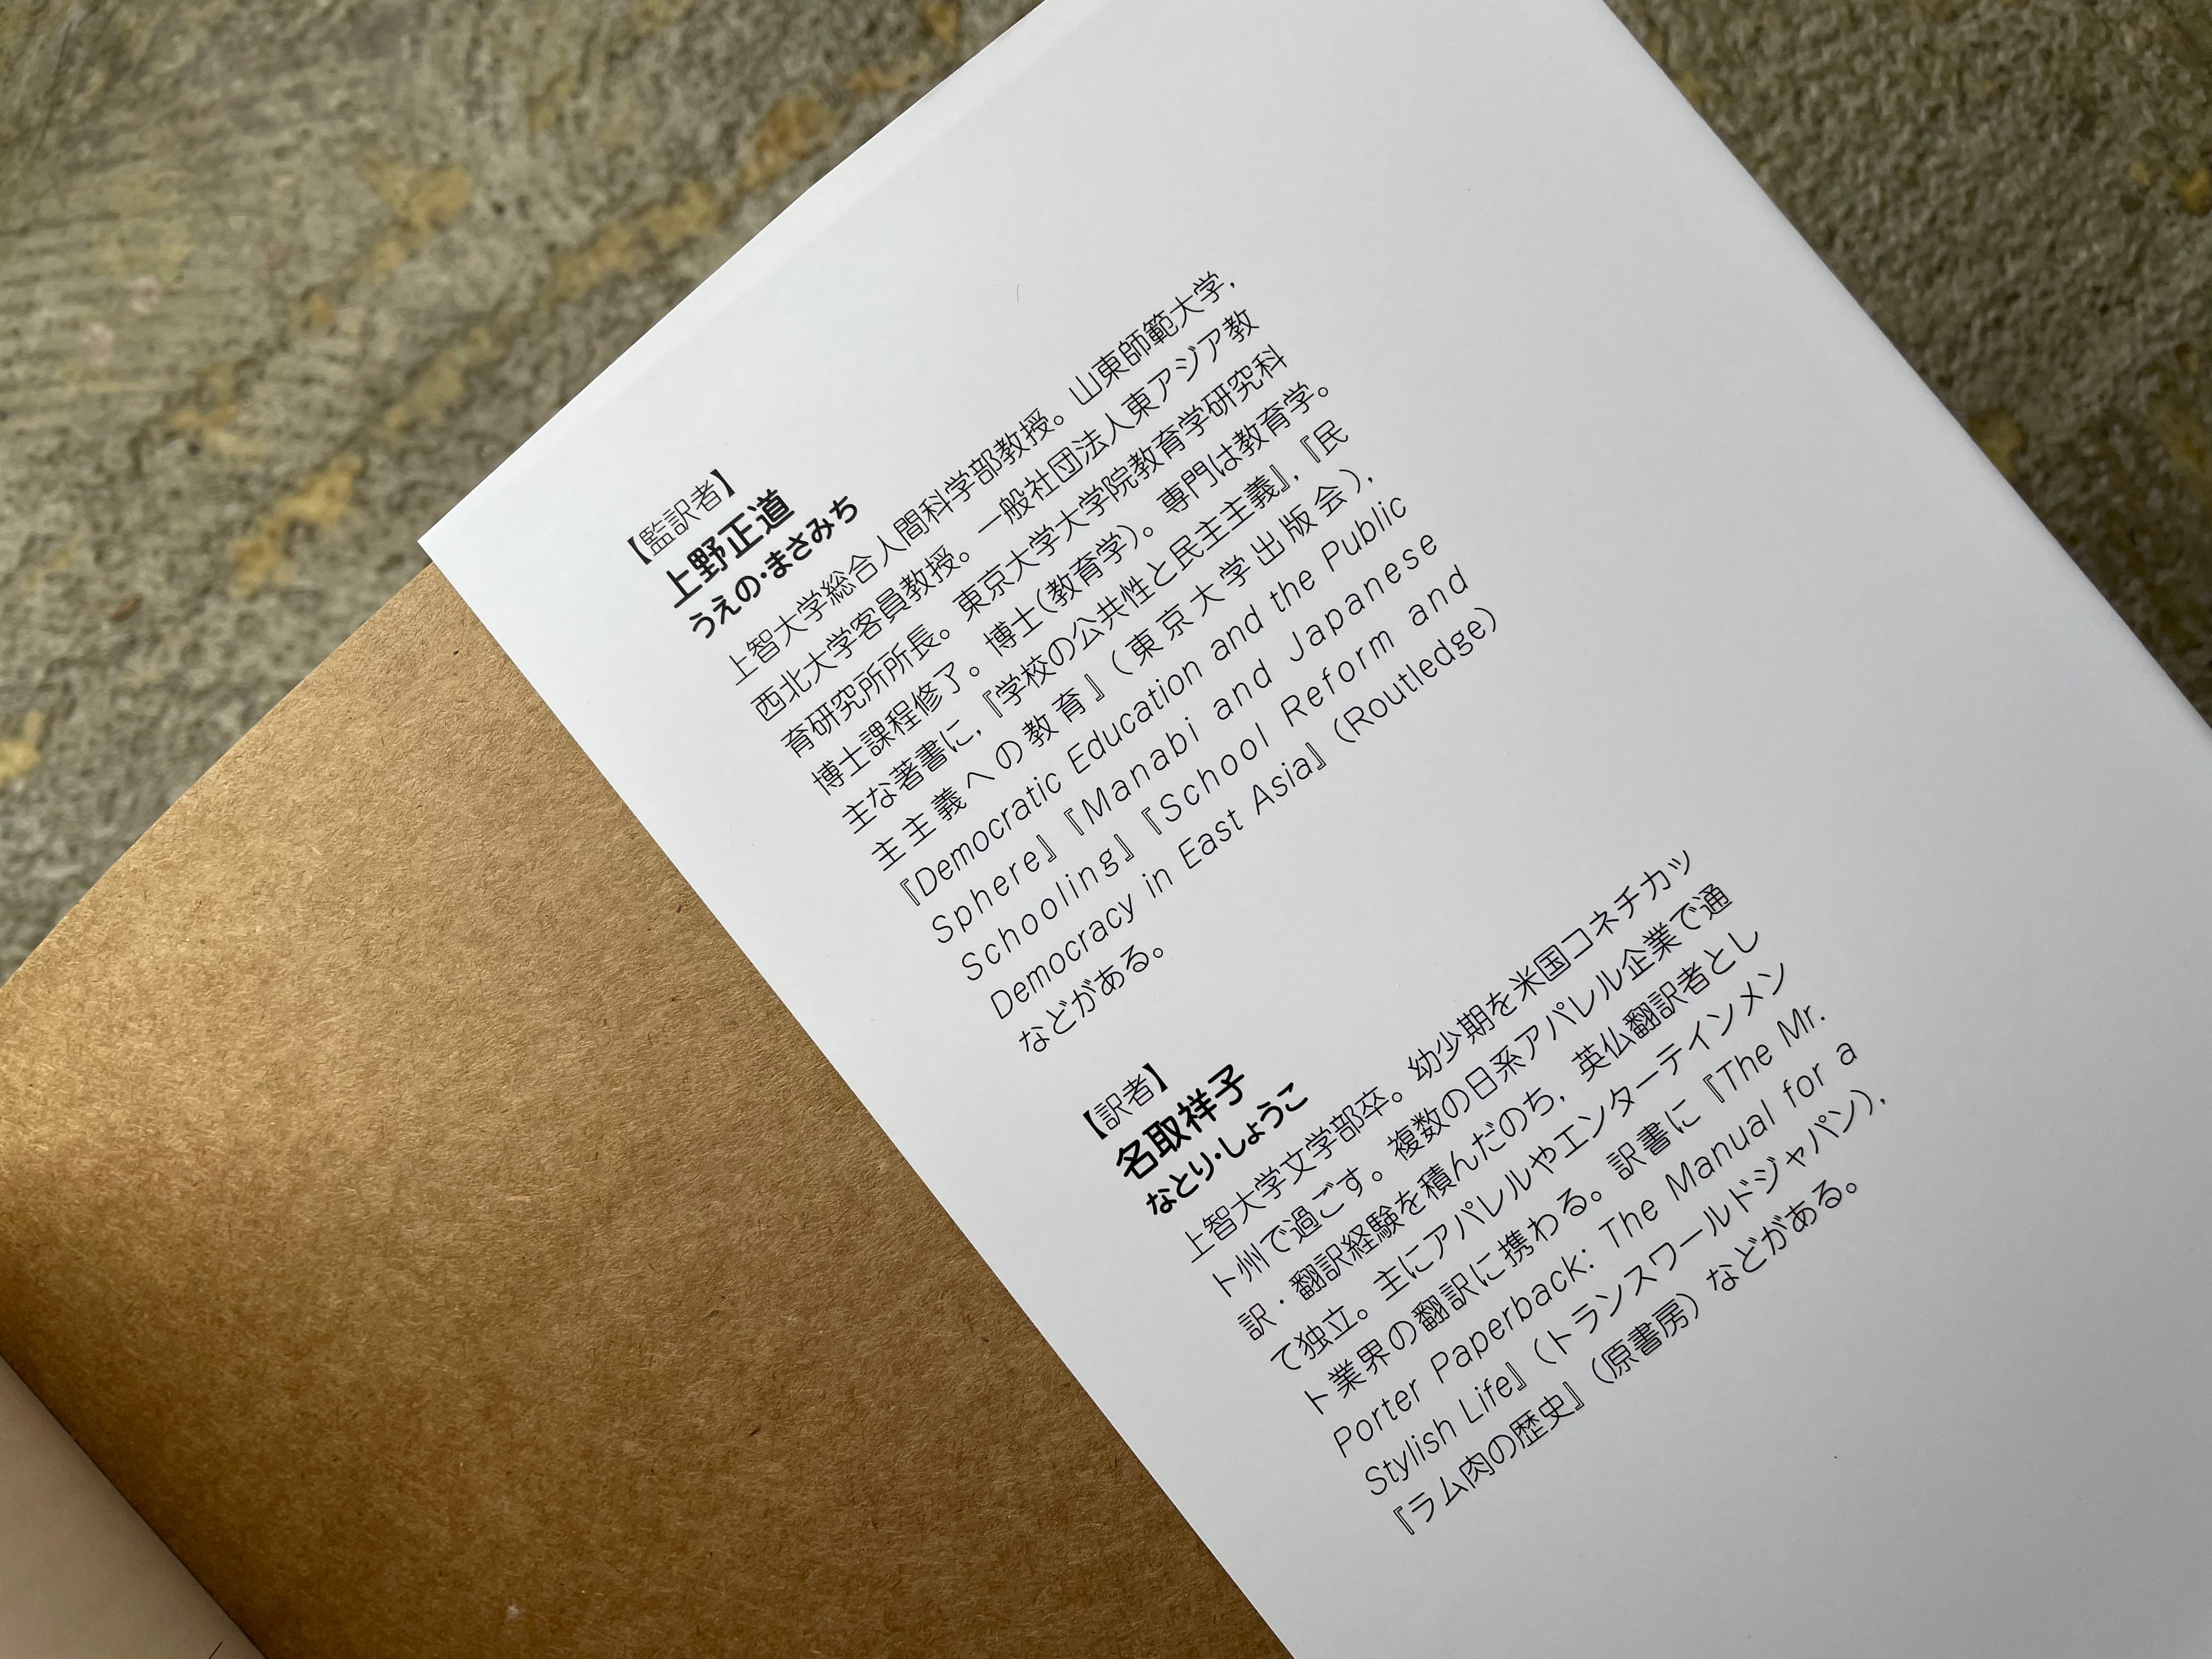 【監訳者】
上野正道
うえの・まさみち
上智大学総合人間科学部教授。山東師範大学，
西北大学客員教授。一般社団法人東アジア教
育研究所所長。東京大学大学院教育学研究科
博士課程修了。博士（教育学）。専門は教育学。
主な著書に，『学校の公共性と民主主義』，『民
主主義への教育』（東京大学出版会），
『Democratic Education and the Public
Sphere』『Manabi and Japanese
Schooling』『School Reform and
Democracy in East Asia』（Routledge）
などがある。
【訳者】
名取祥子
なとり・しょうこ
上智大学文学部卒。幼少期を米国コネチカッ
ト州で過ごす。複数の日系アパレル企業で通
訳・翻訳経験を積んだのち，英仏翻訳者とし
て独立。主にアパレルやエンターテインメン
ト業界の翻訳に携わる。訳書に『The Mr.
Porter Paperback: The Manual for a
Stylish Life』（トランスワールドジャパン），
『ラム肉の歴史』（原書房）などがある。